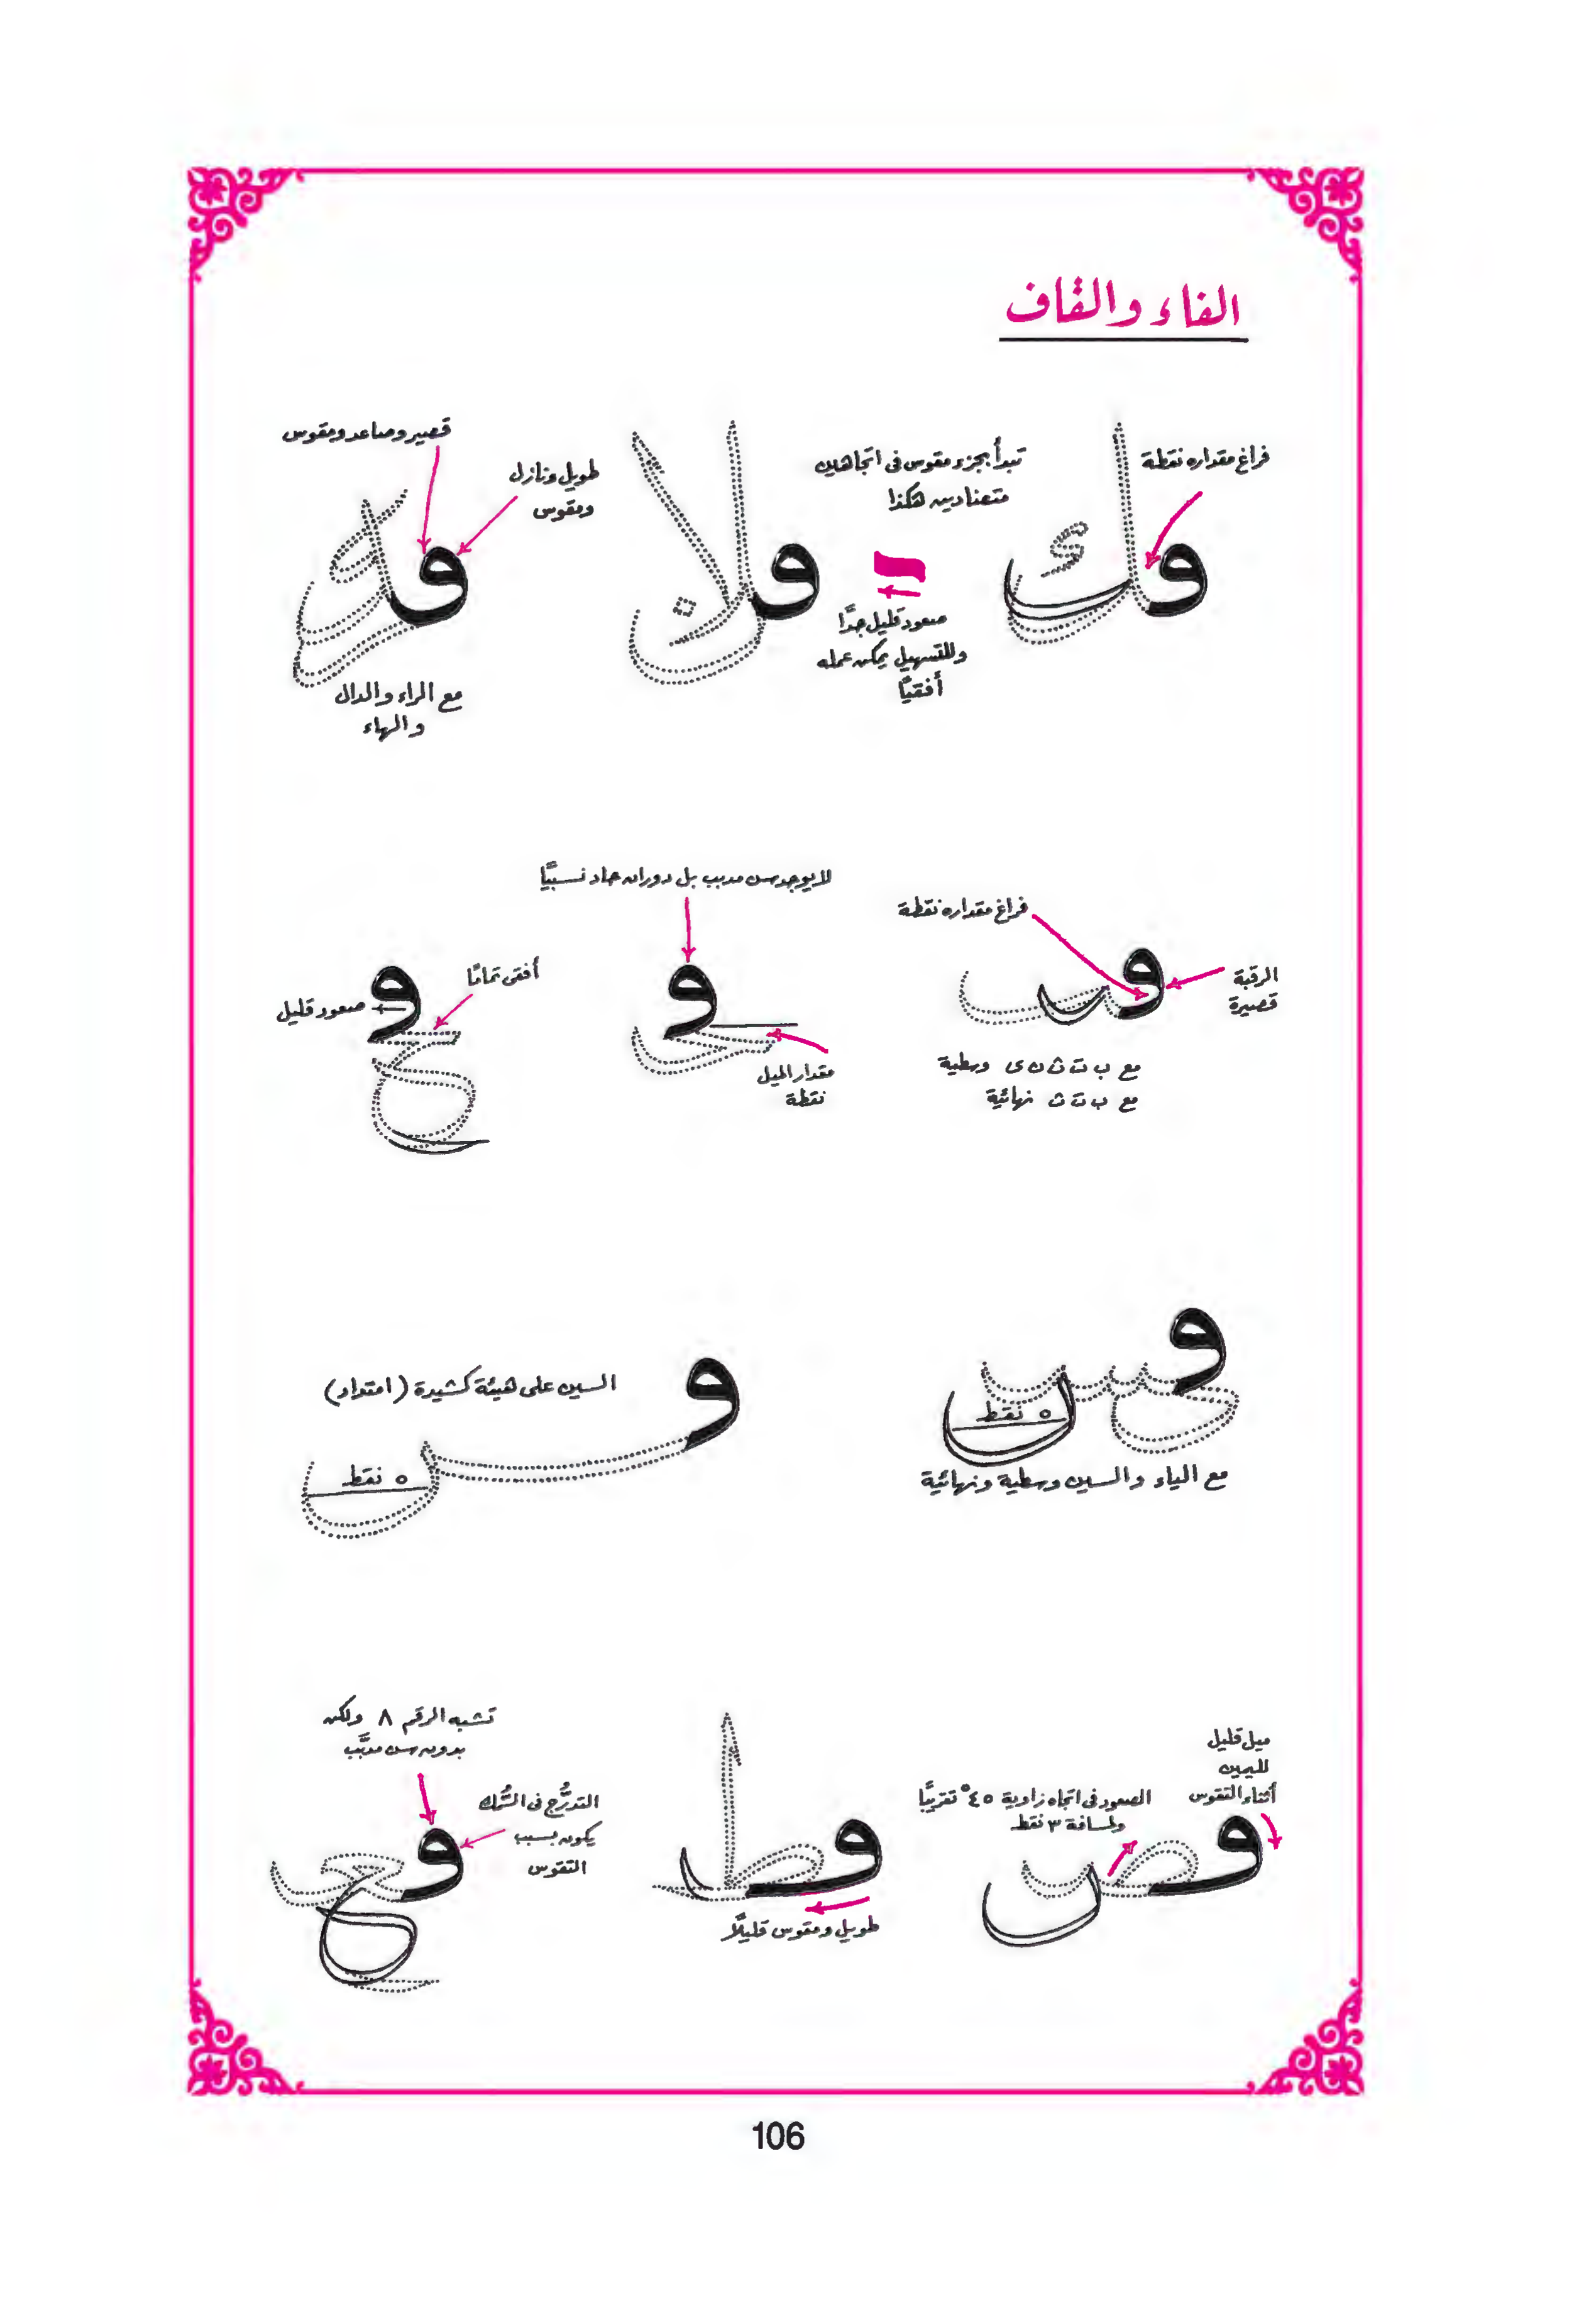 الفاء والقاف
فراغ مقداره نقطة
تبدأ بجزء مقوس فى اتجاهين
متضادين هكذا
صعود قليل جدًّا
وللتسهيل يمكن عمله
أفقيًّا
طويل ونازل
ومقوس
قصير وصاعد ومقوس
مع الراء والدال
والهاء
فراغ مقداره نقطة
الرقبة
قصيرة
مع ب ت ث ن ى وسطية
مع ب ت ث نهائية
لا يوجد سن مدبب بل دوران حاد نسبيًّا
مقدار الميل
نقطة
أفقى تمامًا
صعود قليل
٥ نقط
مع الياء والسين وسطية ونهائية
السين على هيئة كشيدة (امتداد)
٥ نقط
ميل قليل
لليمين
أثناء التقوس
الصعود فى اتجاه زاوية ٤٥° تقريبًا
ولمسافة ٣ نقط
طويل ومقوس قليلًا
تشبه الرقم ٨ ولكن
بدون سن مدبَّب
التدرُّج فى السُّمك
يكون بسبب
التقوس
106